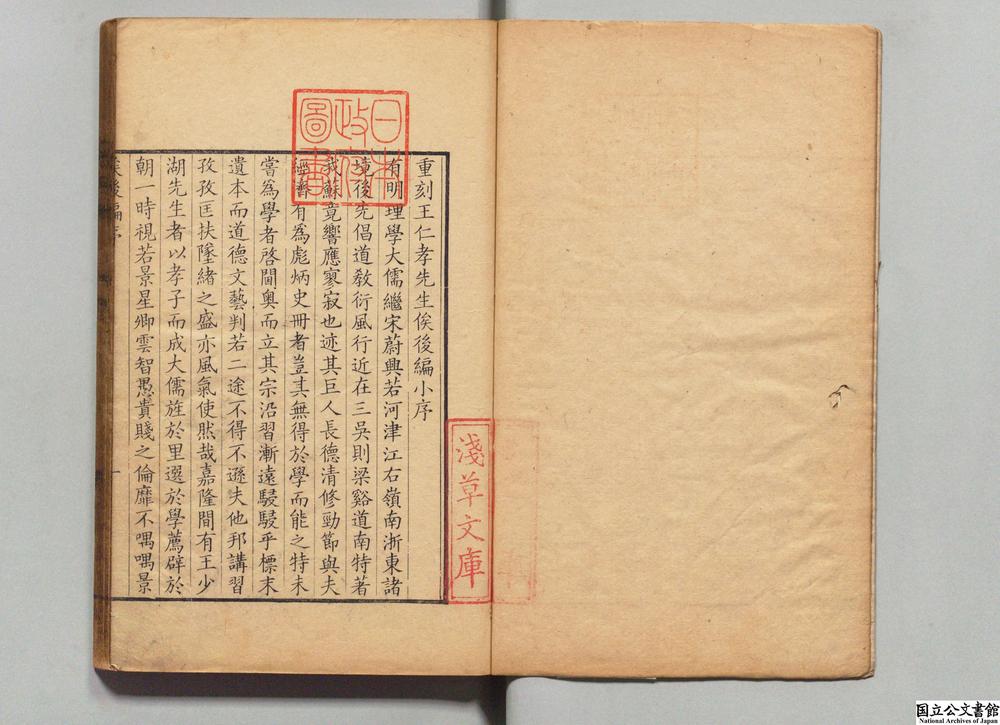 重刻王仁孝先生俟後編小序
有明理學大儒繼宋蔚興若河津江右嶺南浙東諸
境後先倡道教衍風行近在三吳則梁谿道南特著
我蘇竟響應寥寂也迹其巨人長德清修勁節與夫
經書有為彪炳史冊者豈其無得於學而能之特未
嘗為學者啓閫奧而立其宗沿習漸遠駸駸乎標末
遺本而道德文藝判若二途不得不遜夫他邦講習
孜孜匡扶墜緒之盛亦風氣使然哉嘉隆間有王少
湖先生者以孝子而成大儒旌於里選於學薦辟於
朝一時視若景星卿雲智愚貴賤之倫靡不喁喁景
俟後編序
一
日本政府圖書
淺草文庫
国立公文書館
National Archives of Japan